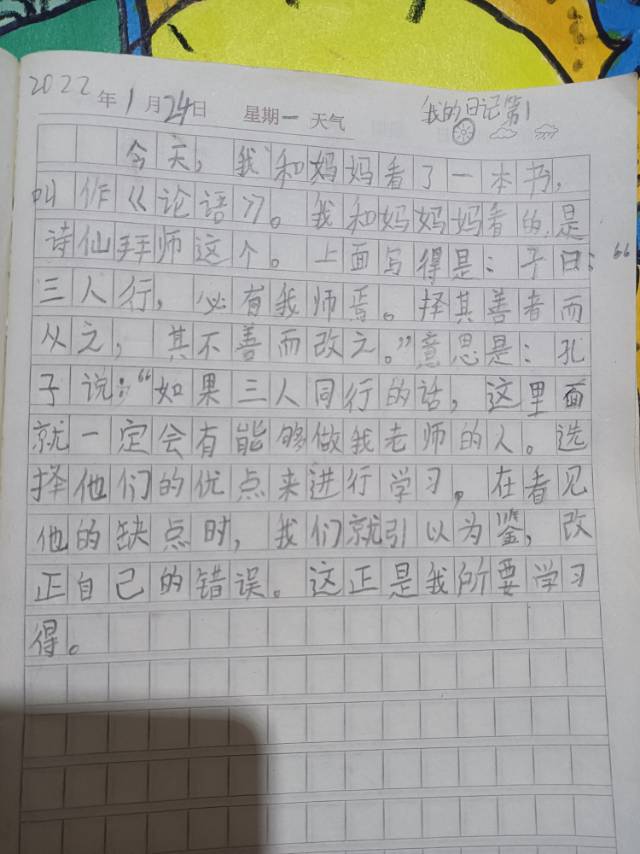 2022年1月24日 星期一 天气 我的日记第1
今天，我和妈妈看了一本书，
叫作《论语》。我和妈妈妈看的是
诗仙拜师这个。上面写得是：子曰：“
三人行，必有我师焉。择其善者而
从之，其不善而改之。”意思是：孔
子说：“如果三人同行的话，这里面
就一定会有能够做我老师的人。选
择他们的优点来进行学习，在看见
他的缺点时，我们就引以为鉴，改
正自己的错误。这正是我所要学习
得。